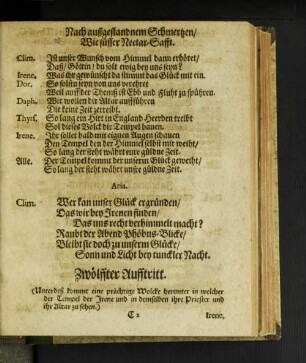 Nach außgestandnem Schmertzen/
Wie süsser Nectar-Safft.
Clim. Ist unser Wunsch vom Himmel dann erhöret/
Daß/ Göttin! du solt ewig bey uns seyn?
Irene. Was ihr gewünscht da stimmt das Glück mit ein.
Dor. So solstu seyn von uns verehrt
Weil auff der Themß ist Ebb und Fluht zu spühren.
Daph. Wir wollen dir Altar auffführen
Die keine Zeit zerreibt.
Thyrs. So lang ein Hirt in England Heerden treibt
Sol dieses Volck dir Tempel bauen.
Irene. Ihr sollet bald mit eignen Augen schauen
Den Tempel den der Himmel selbst mir weiht/
So lang der steht währt eure güldne Zeit.
Alle. Der Tempel kommt der unserm Glück geweiht/
So lang der steht währt unsre güldne Zeit.
Aria.
Clim. Wer kan unser Glück ergründen/
Das wir bey Irenen finden/
Das uns recht verhimmelt macht?
Raubt der Abend Phöbus-Blicke/
Bleibt sie doch zu unserm Glücke/
Sonn und Licht bey tunckler Nacht.
Zwölffter Aufftritt.
(Unterdeß kommt eine prächtige Wolcke herunter in welcher
der Tempel der Irene und in demselben ihre Priester und
ihr Altar zu sehen.)
C 2 Irene,